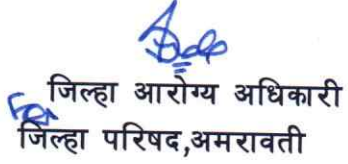 जिल्हा आरोग्य अधिकारी
For जिल्हा परिषद,अमरावती